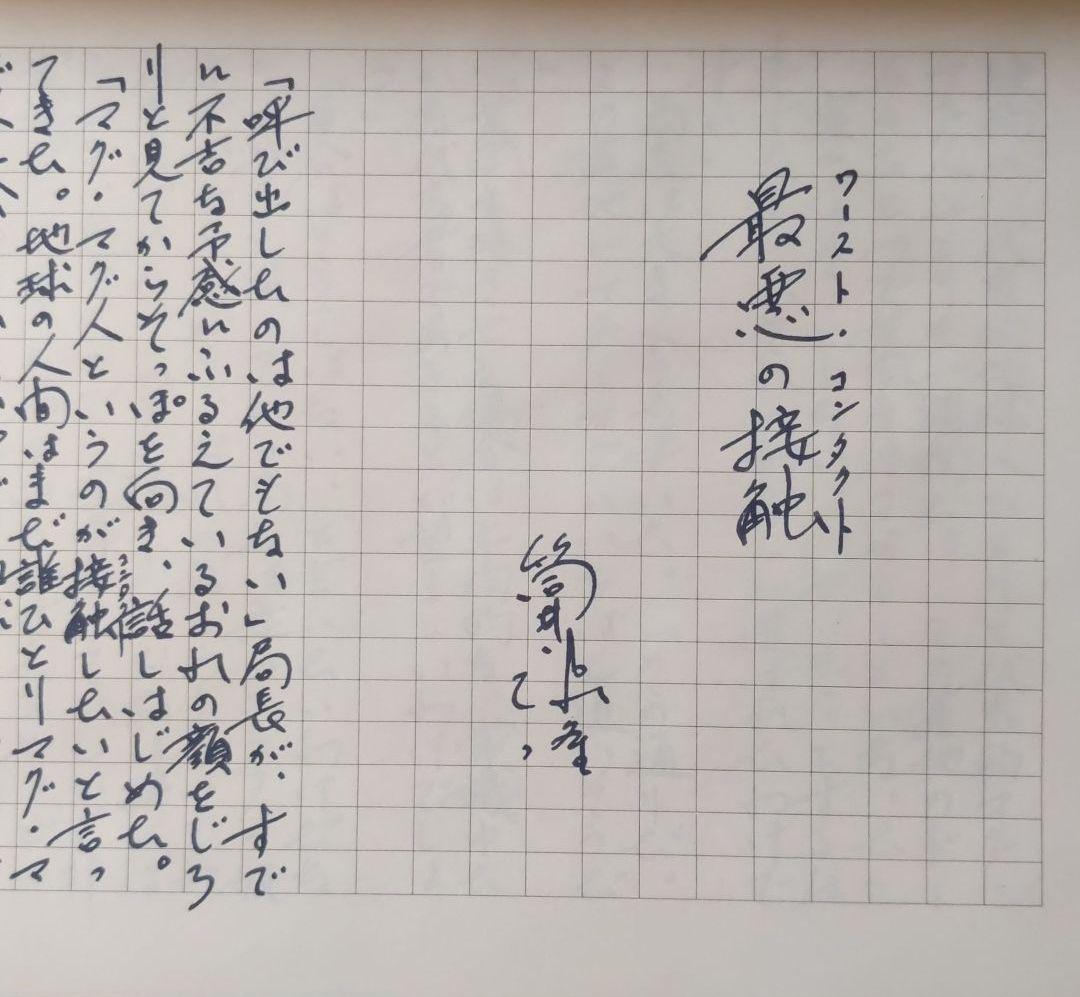 ワースト・コンタクト
最悪の接触
筒井康隆
「呼び出したのは他でもない」局長が、すで
に不吉な予感にふるえているおれの顔をじろ
りと見てからそっぽを向き、話しはじめた。
「マグ・マグ人というのが接触したいと言っ
てきた。地球の人間はまだ誰ひとりマグ・マ